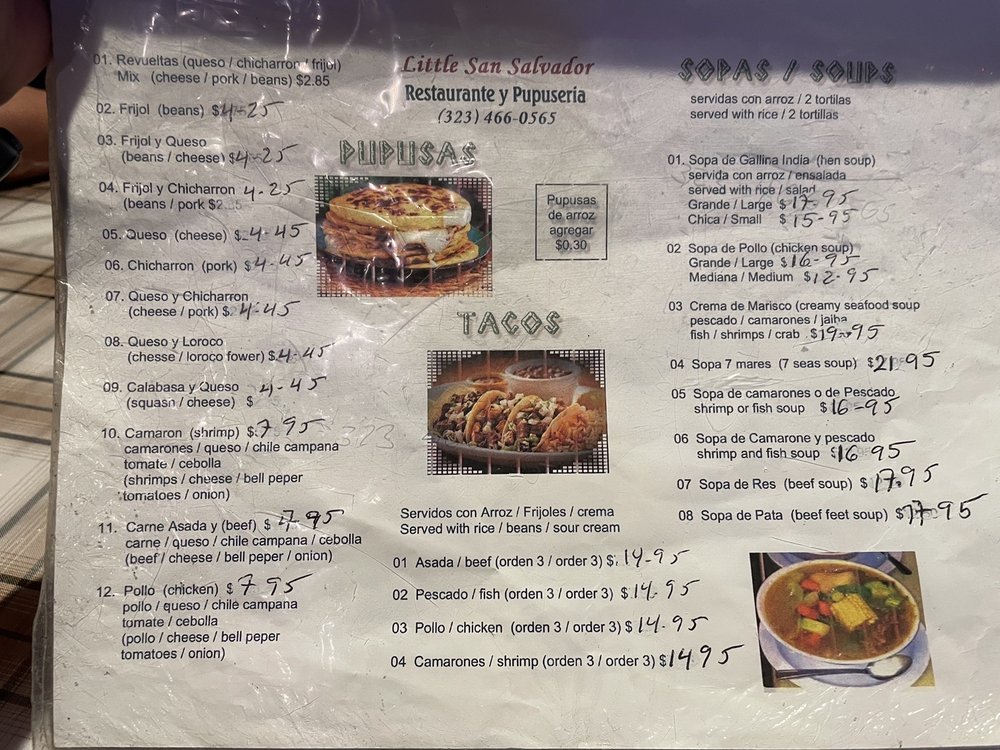 01. Revueltas (queso / chicharron / frijol)
Mix (cheese / pork / beans) $2.85
02. Frijol (beans) $4-25
03. Frijol y Queso
(beans / cheese) $4-25
04. Frijol y Chicharron 4-25
(beans / pork $2.
05. Queso (cheese) $4-45
06. Chicharron (pork) $4-45
07. Queso y Chicharron
(cheese / pork) $4-45
08. Queso y Loroco
(chesse / loroco fower) $4-45
09. Calabasa y Queso 4-45
(squasn / cheese) $
10. Camaron (shrimp) $7 95
camarones / queso / chile campana
tomate / cebolla
(shrimps / cheese / bell peper
tomatoes / onion)
11. Carne Asada y (beef) $7.95
carne / queso / chile campana / cebolla
(beef / cheese / bell peper / onion)
12. Pollo (chicken) $7 95
pollo / queso / chile campana
tomate / cebolla
(pollo / cheese / bell peper
tomatoes / onion)
Little San Salvador
Restaurante y Pupuseria
(323) 466-0565
PUPUSAS
Pupusas
de arroz
agregar
$0.30
TACOS
Servidos con Arroz / Frijoles / crema
Served with rice / beans / sour cream
01 Asada / beef (orden 3 / order 3) $14-95
02 Pescado / fish (orden 3 / order 3) $14.95
03 Pollo / chicken (orden 3 / order 3) $14.95
04 Camarones / shrimp (orden 3 / order 3) $14 95
SOPAS / SOUPS
servidas con arroz / 2 tortilas
served with rice / 2 tortillas
01. Sopa de Gallina India (hen soup)
servida con arroz / ensalada
served with rice / salad
Grande / Large $17-95
Chica / Small $15-95
02 Sopa de Pollo (chicken soup)
Grande / Large $16-95
Mediana / Medium $12-95
03 Crema de Marisco (creamy seafood soup
pescado / camarones / jaiba
fish / shrimps / crab $19-95
04 Sopa 7 mares (7 seas soup) $21.95
05 Sopa de camarones o de Pescado
shrimp or fish soup $16-95
06 Sopa de Camarone y pescado
shrimp and fish soup $16 95
07 Sopa de Res (beef soup) $17.95
08 Sopa de Pata (beef feet soup) $17-95